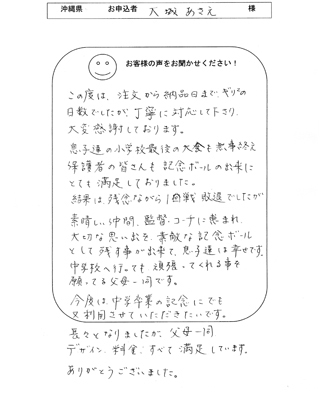 沖縄県　お申込者　大城 あさえ　様
お客様の声をお聞かせください！
この度は、注文から納品日まで、ギリギリの
日数でしたが、丁寧に対応して下さり、
大変感謝しております。
息子達の小学校最後の大会も無事終え
保護者の皆さんも記念ボールの出来に
とても満足しておりました。
結果は、残念ながら1回戦敗退でしたが
素晴しい仲間、監督、コーチに恵まれ、
大切な思い出を、素敵な記念ボール
として残す事が出来て、息子達は幸せです。
中学校へ行っても頑張ってくれる事を
願ってる父母一同です。
今度は、中学卒業の記念にでも
又利用させていただきたいです。
長々となりましたが、父母一同
デザイン、料金、すべて満足しています。
ありがとうございました。